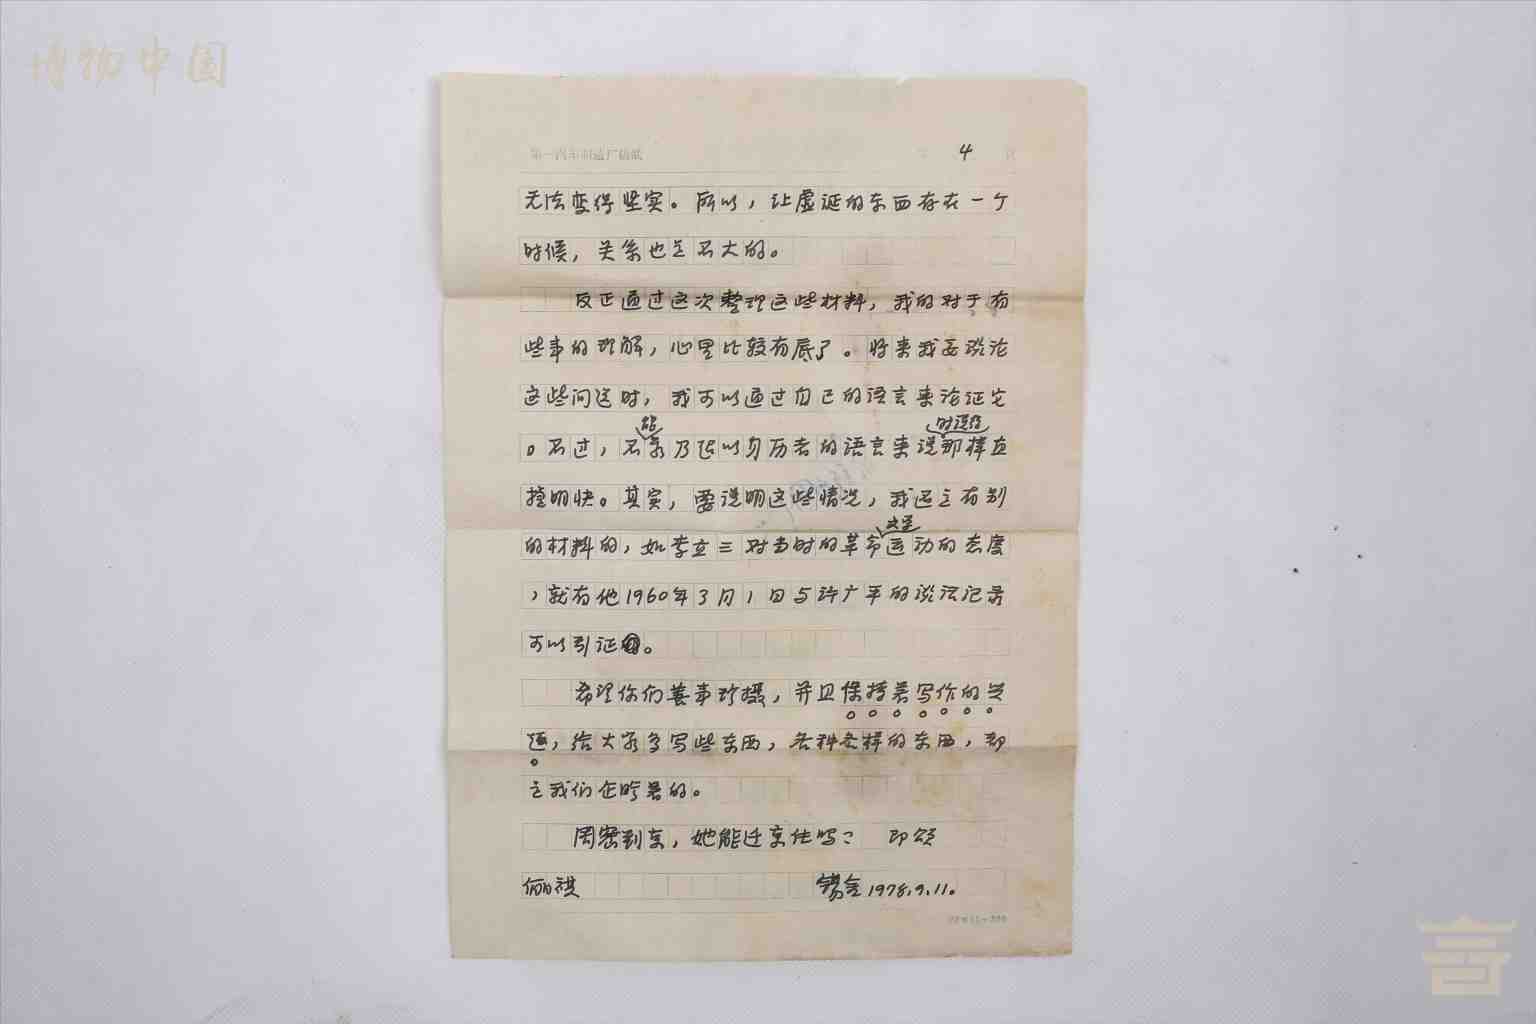 博物中国
第一汽车制造厂稿纸 第 4 页
无法变得坚实。所以，让虚诞的东西存在一个
时候，关系也是不大的。
反正通过这次整理这些材料，我的对于有
些事的理解，心里比较有底了。将来我要谈论
这些问题时，我可以通过自己的语言来论证它
能 时说得
。不过，不 以身历者的语言来说那样直
捷明快。其实，要说明这些情况，我还是有别
文学
的材料的，如李立三对当时的革命运动的态度
，就有他1960年3月1日与许广平的谈话记录
可以引证。
希望你们善事珍摄，并且保持着写作的兴
趣，给大家多写些东西，各种各样的东西，都
是我们企盼着的。
周密到京，她能迁京住吗？ 即颂
俪祺 锡金 1978.9.11.